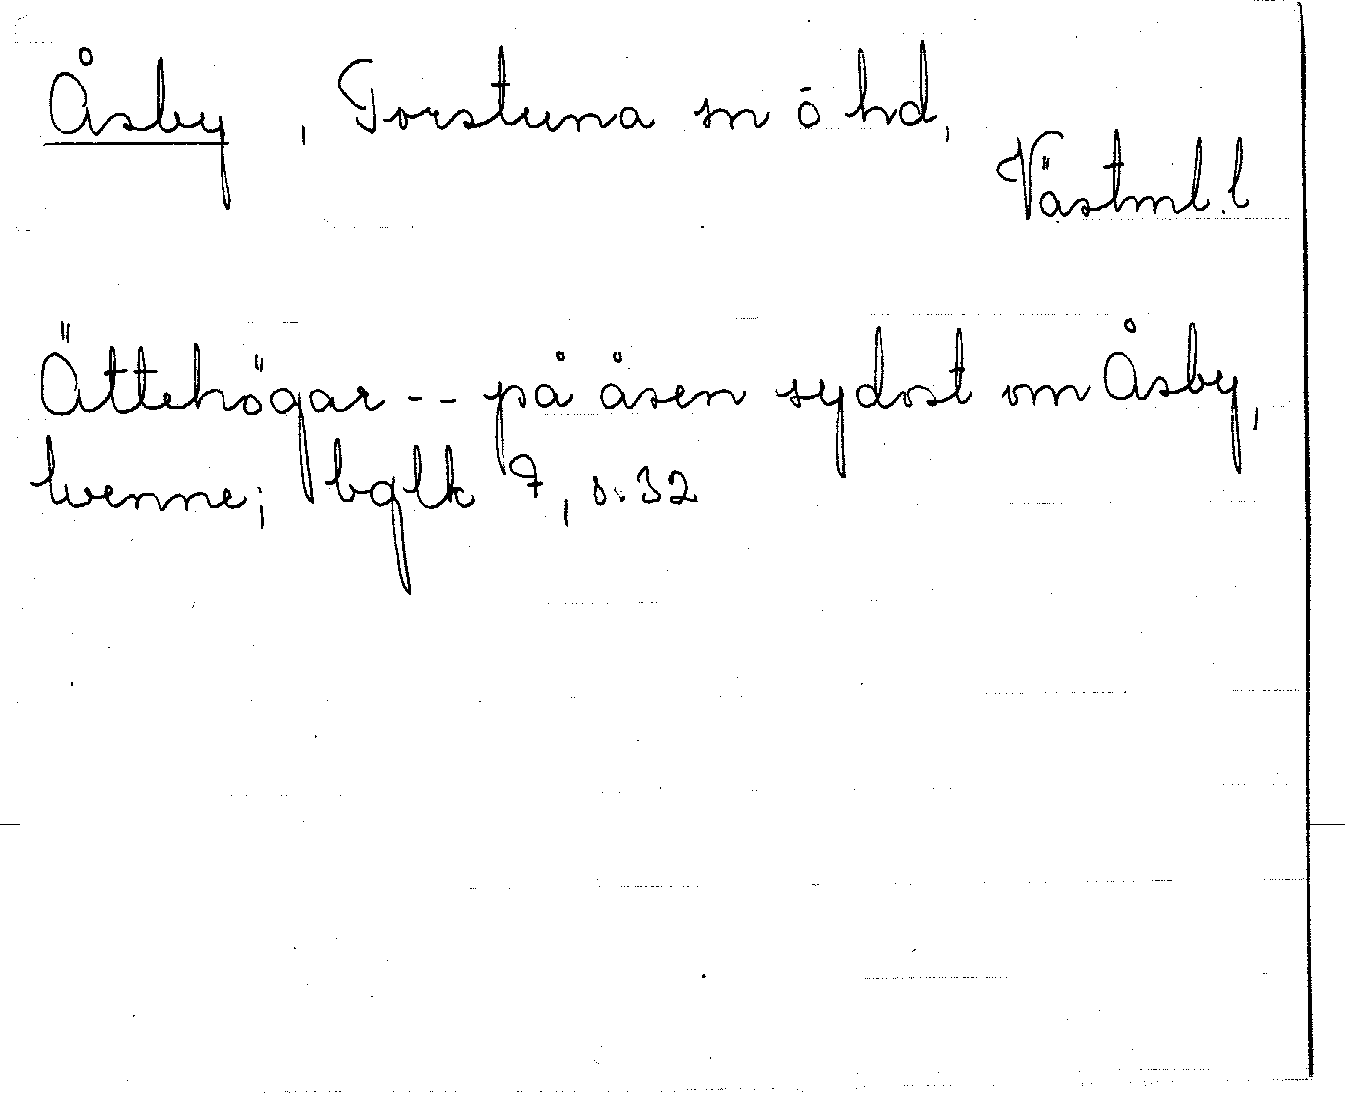 Åsby, Torstuna sn o hd,
Västml. l
Ättehögar -- på åsen sydost om Åsby,
bglk 7, s. 32